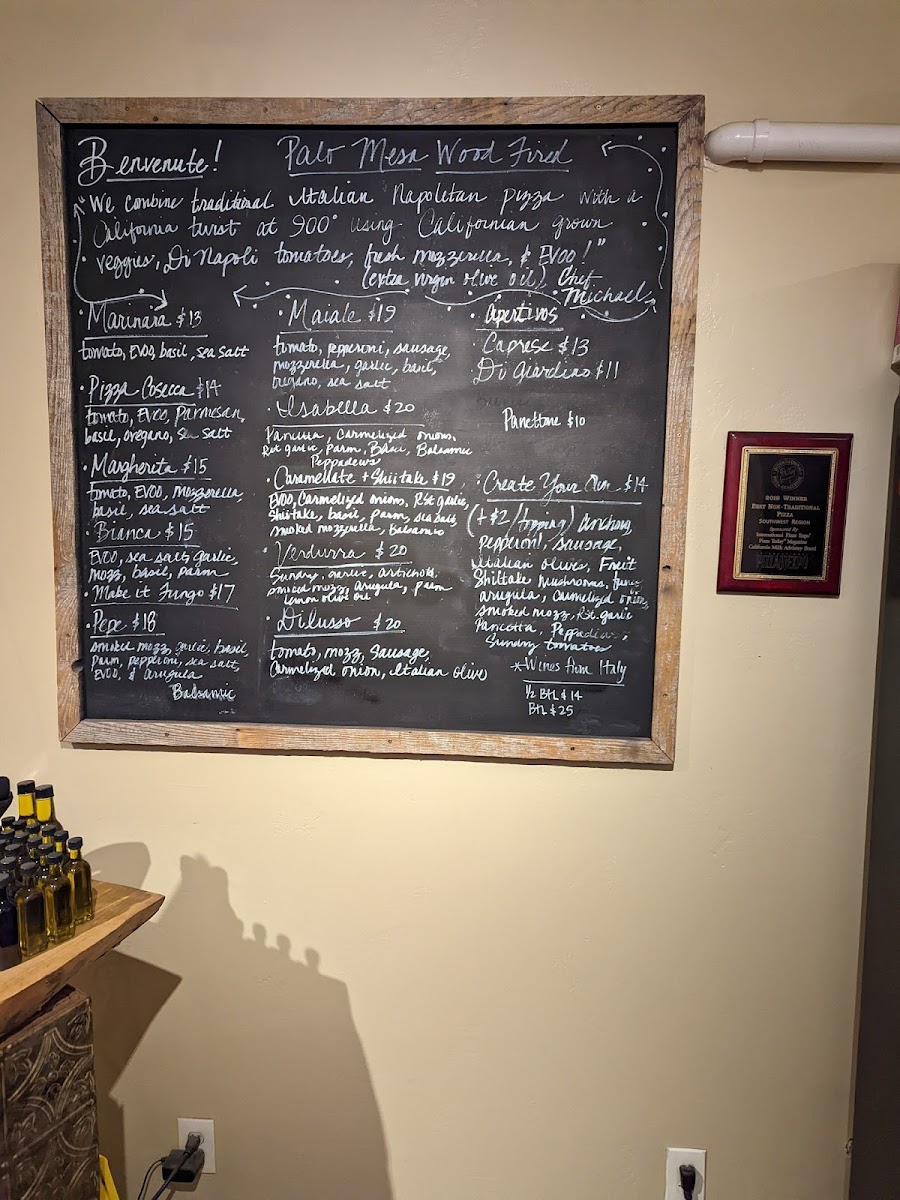 Benvenute!
Palo Mesa Wood Fired
"We combine traditional Italian Napolitan pizza with a
California twist at 900° using Californian grown
veggies, Di Napoli tomatoes, fresh mozzerella, & EVOO!"
(extra virgin olive oil) Chef
Michael
Marinara $13
tomato, EVOO, basil, sea salt
Pizza Cosecca $14
tomato, EVOO, Parmesan,
basil, oregano, sea salt
Margherita $15
tomato, EVOO, mozzerella,
basil, sea salt
Bianca $15
EVOO, sea salt, garlic,
mozz, basil, parm
Make it Fungo $17
Pepe $18
smoked mozz, garlic, basil
parm, pepperoni, sea salt,
EVOO, & arugula
Balsamic
Maiale $19
tomato, pepperoni, sausage,
mozzerella, garlic, basil,
oregano, sea salt
Isabella $20
Pancetta, Carmelized onions,
Rst garlic, Parm, Basil, Balsamic
Peppadews
Caramellate + Shiitake $19
EVOO, Carmelized onions, Rst garlic,
Shiitake, basil, parm, sea salt,
smoked mozzerella, Balsamic
Verdurra $20
Sundry, garlic, artichoks,
smoked mozz, arugula, parm
lemon olive oil
Dilusso $20
tomato, mozz, Sausage,
Carmelized onion, Italian olives
Apertivos
Caprese $13
Di Giardino $11
Panettone $10
Create Your Own $14
(+$2/topping) anchovy,
pepperoni, sausage,
Italian olives, Fruit
Shiitake mushrooms,
arugula, Carmelized onions,
smoked mozz, Rst. garlic
Pancetta, Peppadews,
Sundry tomatoes
*Wines from Italy
½ BTL $14
BTL $25
2018 WINNER
BEST NON-TRADITIONAL
PIZZA
SOUTHWEST REGION
Sponsored By
International Pizza Expo
Pizza Today Magazine
California Milk Advisory Board